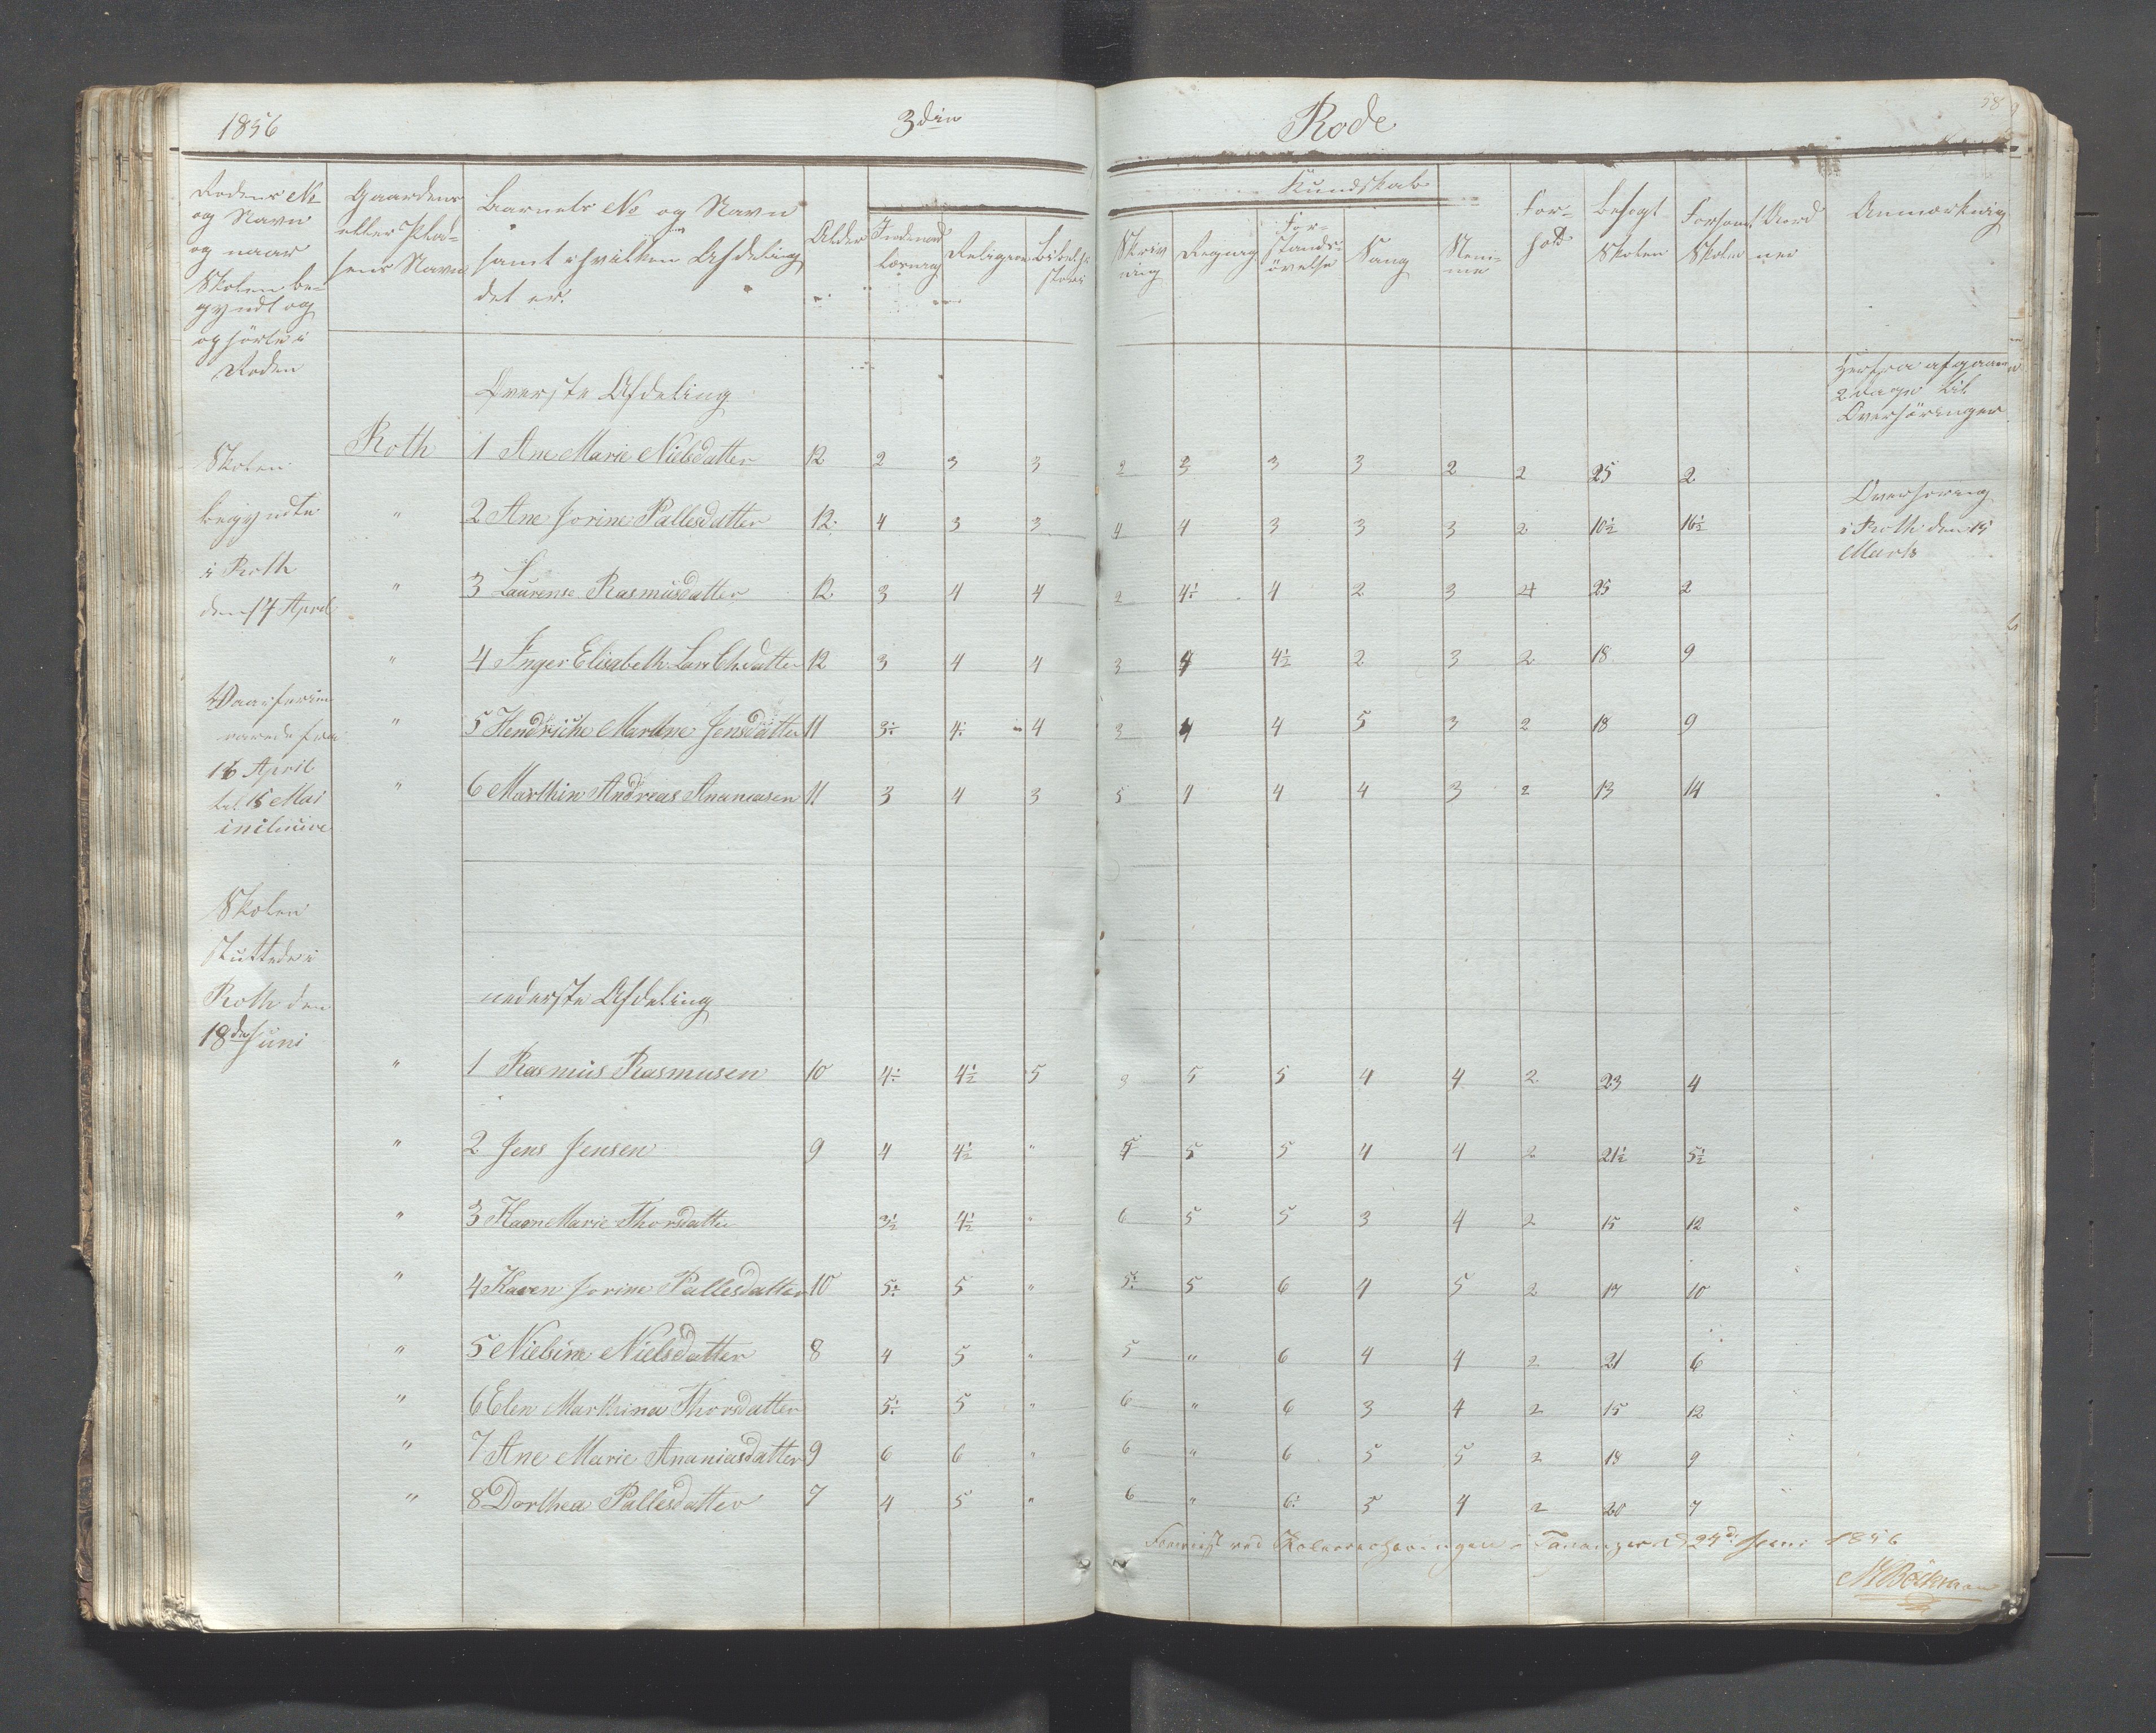 1856 3die Rode 58
Rodens No
og Navn
og naar
Skolen be-
gyndt og
ophørte i
Roden
Gaardens
eller Plad-
sens Navn
Barnets No og Navn
samt i hvilken Afdeling
det er.
Alder
Religion
Kundskab
Skriv
ning
Regning
For-
stands-
øvelse
Sang
Nem-
me
For-
hold
Besøgt
Skolen
Forsømt
Skolen
Anmærkning
Herfra afgaaer
2 Dage til
Overhøringen
Øverste Afdeling
Roth 1 Ane Marie Nielsdatter 12 2 3 3 2 3 3 3 2 2 25 2
" 2 Ane Jorine Pallesdatter 12 4 3 3 4 4 3 3 3 2 10½ 16½
" 3 Laurense Rasmusdatter 12 3 4 4 2 4÷ 4 2 3 4 25 2
" 4 Inger Elisabeth Datter 12 3 4 4 3 4 4½ 2 3 2 18 9
" 5 Hendriche Marthine Jensdatter 11 3÷ 4÷ 4 3 4 4 5 3 2 18 9
" 6 Marthin Andreas Ananiasen 11 3 4 3 5 4 4 4 3 2 13 14
Skolen
begyndte
i Roth
den 14 April
Vaarferien
varede fra
16 April
til 15 Mai
inclusive
Skolen
sluttede i
Roth den
18de Juni
Overhøring
i Roth den 15
Marts
nederste Afdeling
" 1 Rasmus Rasmusen 10 4÷ 4½ 5 3 5 5 4 4 2 23 4
" 2 Jens Jensen 9 4 4½ " 5 5 5 4 4 2 21½ 5½
" 3 Karen Marie Thorsdatter 3½ 4½ " 6 5 5 3 4 2 15 12
" 4 Karen Jorine Pallesdatter 10 5÷ 5 " 5÷ 5 6 4 5 2 17 10
" 5 Nielsine Nielsdatter 8 4 5 " 5 " 6 4 4 2 21 6
" 6 Elen Marthina Thorsdatter 5÷ 5 " 6 " 6 3 4 2 15 12
" 7 Ane Marie Ananiasdatter 9 6 6 " 6 " 6 5 5 2 18 9
" 8 Dorthea Pallesdatter 7 4 5 " 6 " 6÷ 5 4 2 20 7
Foreviist ved Skoleoverhøringen i Tananger d 24de Juni 1856